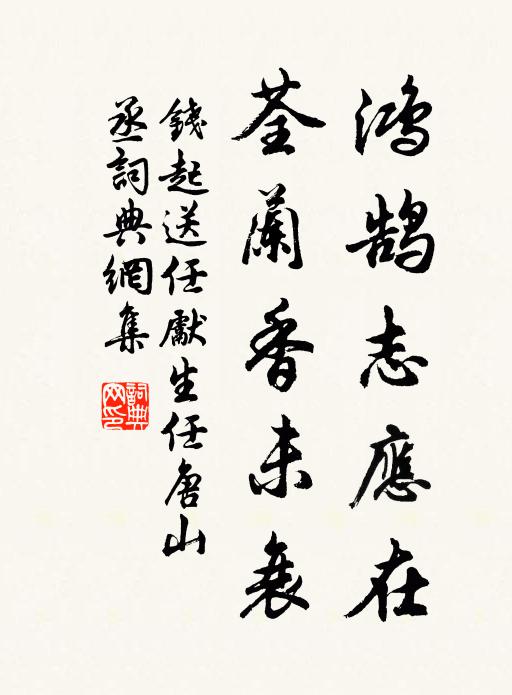 鸿鹄志應在
荃蘭香未衰
錢起送任獻生任唐山
丞詞典網集
詞典
网印